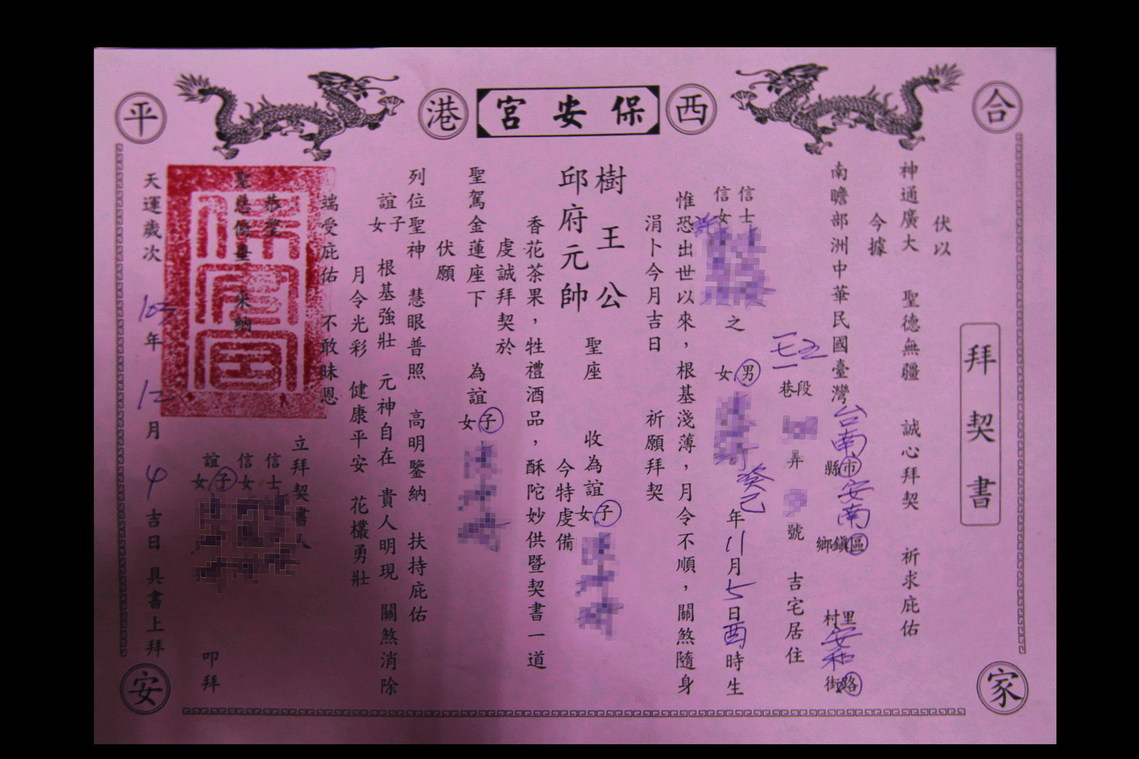 合家平安
西港
保安宮
拜契書
伏以
神通廣大 聖德無疆 誠心拜契 祈求庇佑
今據
南瞻部洲中華民國臺灣台南縣市安南鄉鎮區村里安和街路
段巷 弄 號 吉宅居住
信士
信女
之男女 癸巳年11月七日酉時生
惟恐出世以來,根基淺薄,月令不順,關煞隨身
涓卜今月吉日 祈願拜契
樹王公
邱府元帥
聖座 收為誼子女
今特虔備
香花茶果,牲禮酒品,酥陀妙供暨契書一道
虔誠拜契於
聖駕金蓮座下 為誼子女
伏願
列位聖神 慧眼普照 高明鑒納 扶持庇佑
誼子女 根基強壯 元神自在 貴人明現 關煞消除
月令光彩 健康平安 花欉勇壯
端受庇佑 不敢昧恩
恭望
聖慈俯垂 采納
保安宮
立拜契書人
信士
信女
誼子女
叩拜
天運歲次 103年12月4吉日 具書上拜